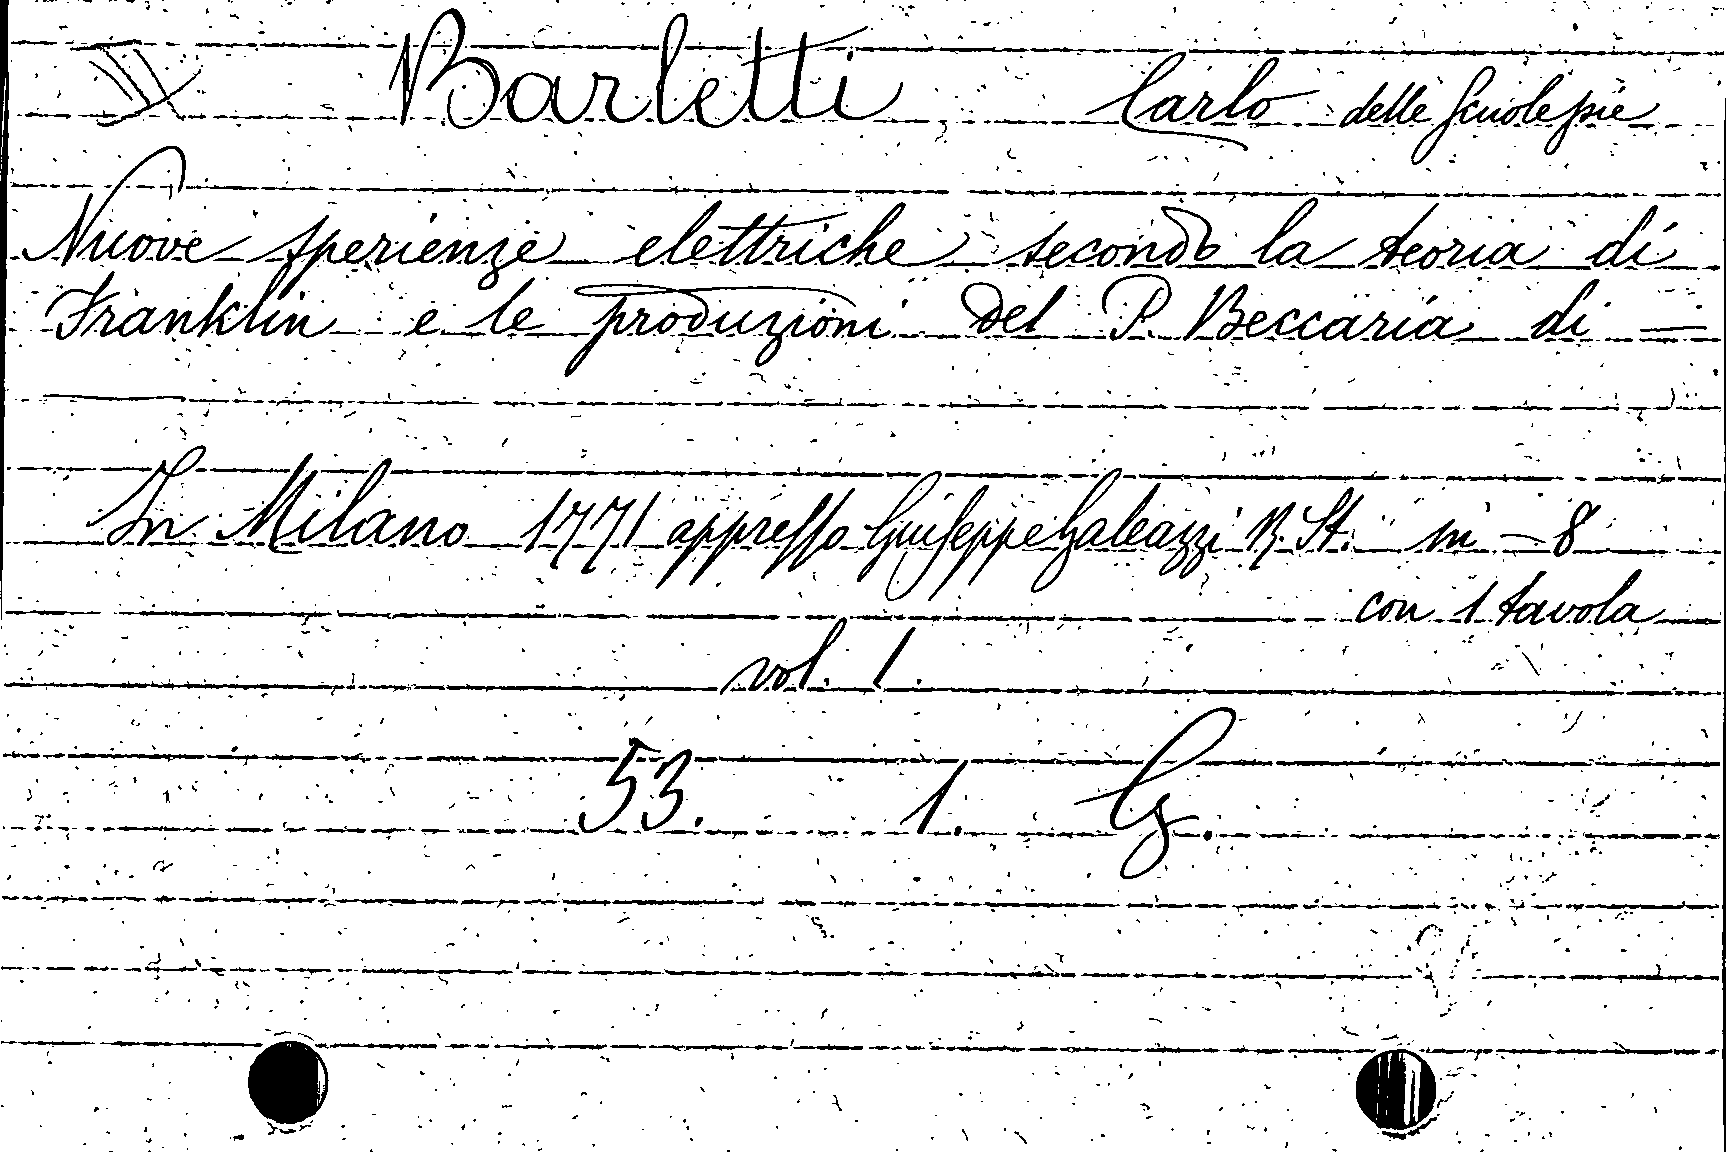 IV Barletti Carlo delle Scuole pie
Nuove sperienze elettriche secondo la teoria di
Franklin e le produzioni del P. Beccaria di —
In Milano 1771 appresso Giuseppe Galeazzi R. St. in - 8
con 1 tavola
vol. 1.
53. 1. G.